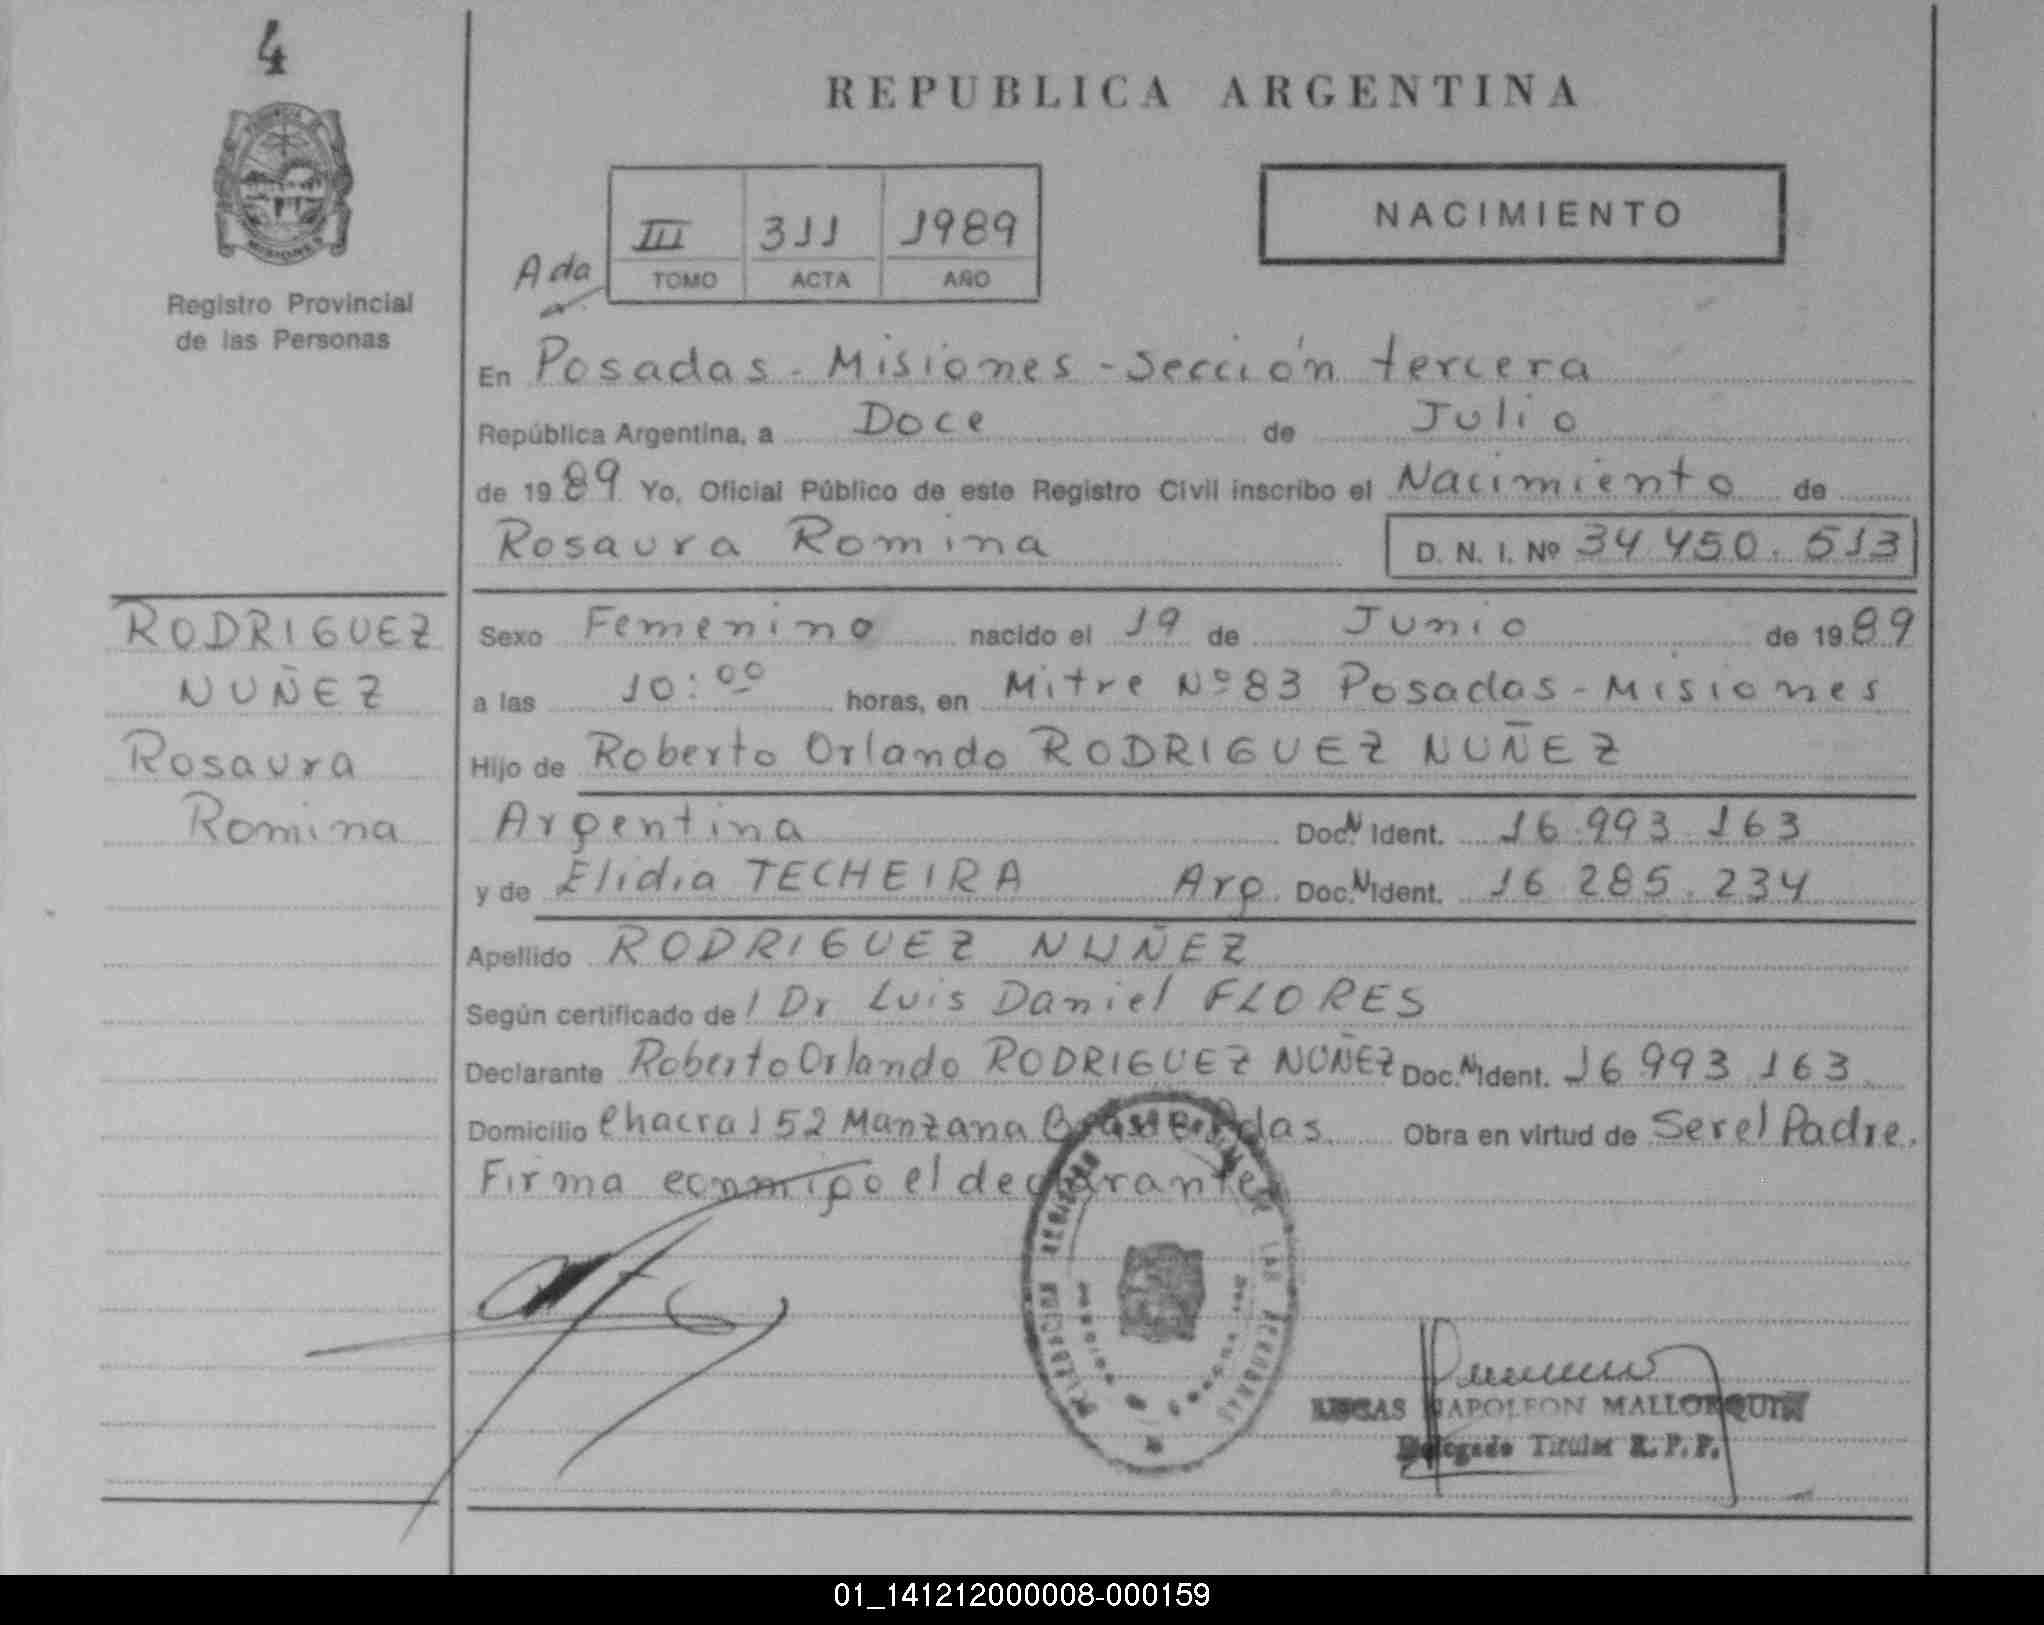 4
REPUBLICA ARGENTINA
MISIONES
Registro Provincial
de las Personas
III 311 1989
TOMO ACTA AÑO
NACIMIENTO
Ada
En Posadas - Misiones - Sección tercera
República Argentina, a Doce de Julio
de 1989 Yo, Oficial Público de este Registro Civil inscribo el Nacimiento de
Rosaura Romina D. N. I. Nº 34 450. 513
RODRIGUEZ
NUÑEZ
Rosaura
Romina
Sexo Femenino nacido el 19 de Junio de 1989
a las 10:00 horas, en Mitre Nº 83 Posadas - Misiones
Hijo de Roberto Orlando RODRIGUEZ NUÑEZ
Argentina Doc. N Ident. 16.993.163
y de Elidia TECHEIRA Arg. Doc. N Ident. 16 285.234
Apellido RODRIGUEZ NUÑEZ
Según certificado de l Dr Luis Daniel FLORES
Declarante Roberto Orlando RODRIGUEZ NUÑEZ Doc. N Ident. 16 993 163
Domicilio Chacra 152 Manzana Obra en virtud de Ser el Padre.
Firma conmigo el declarante
NAPOLEON MALLORQUIN
Delegado Titular R. P. P.
01_141212000008-000159